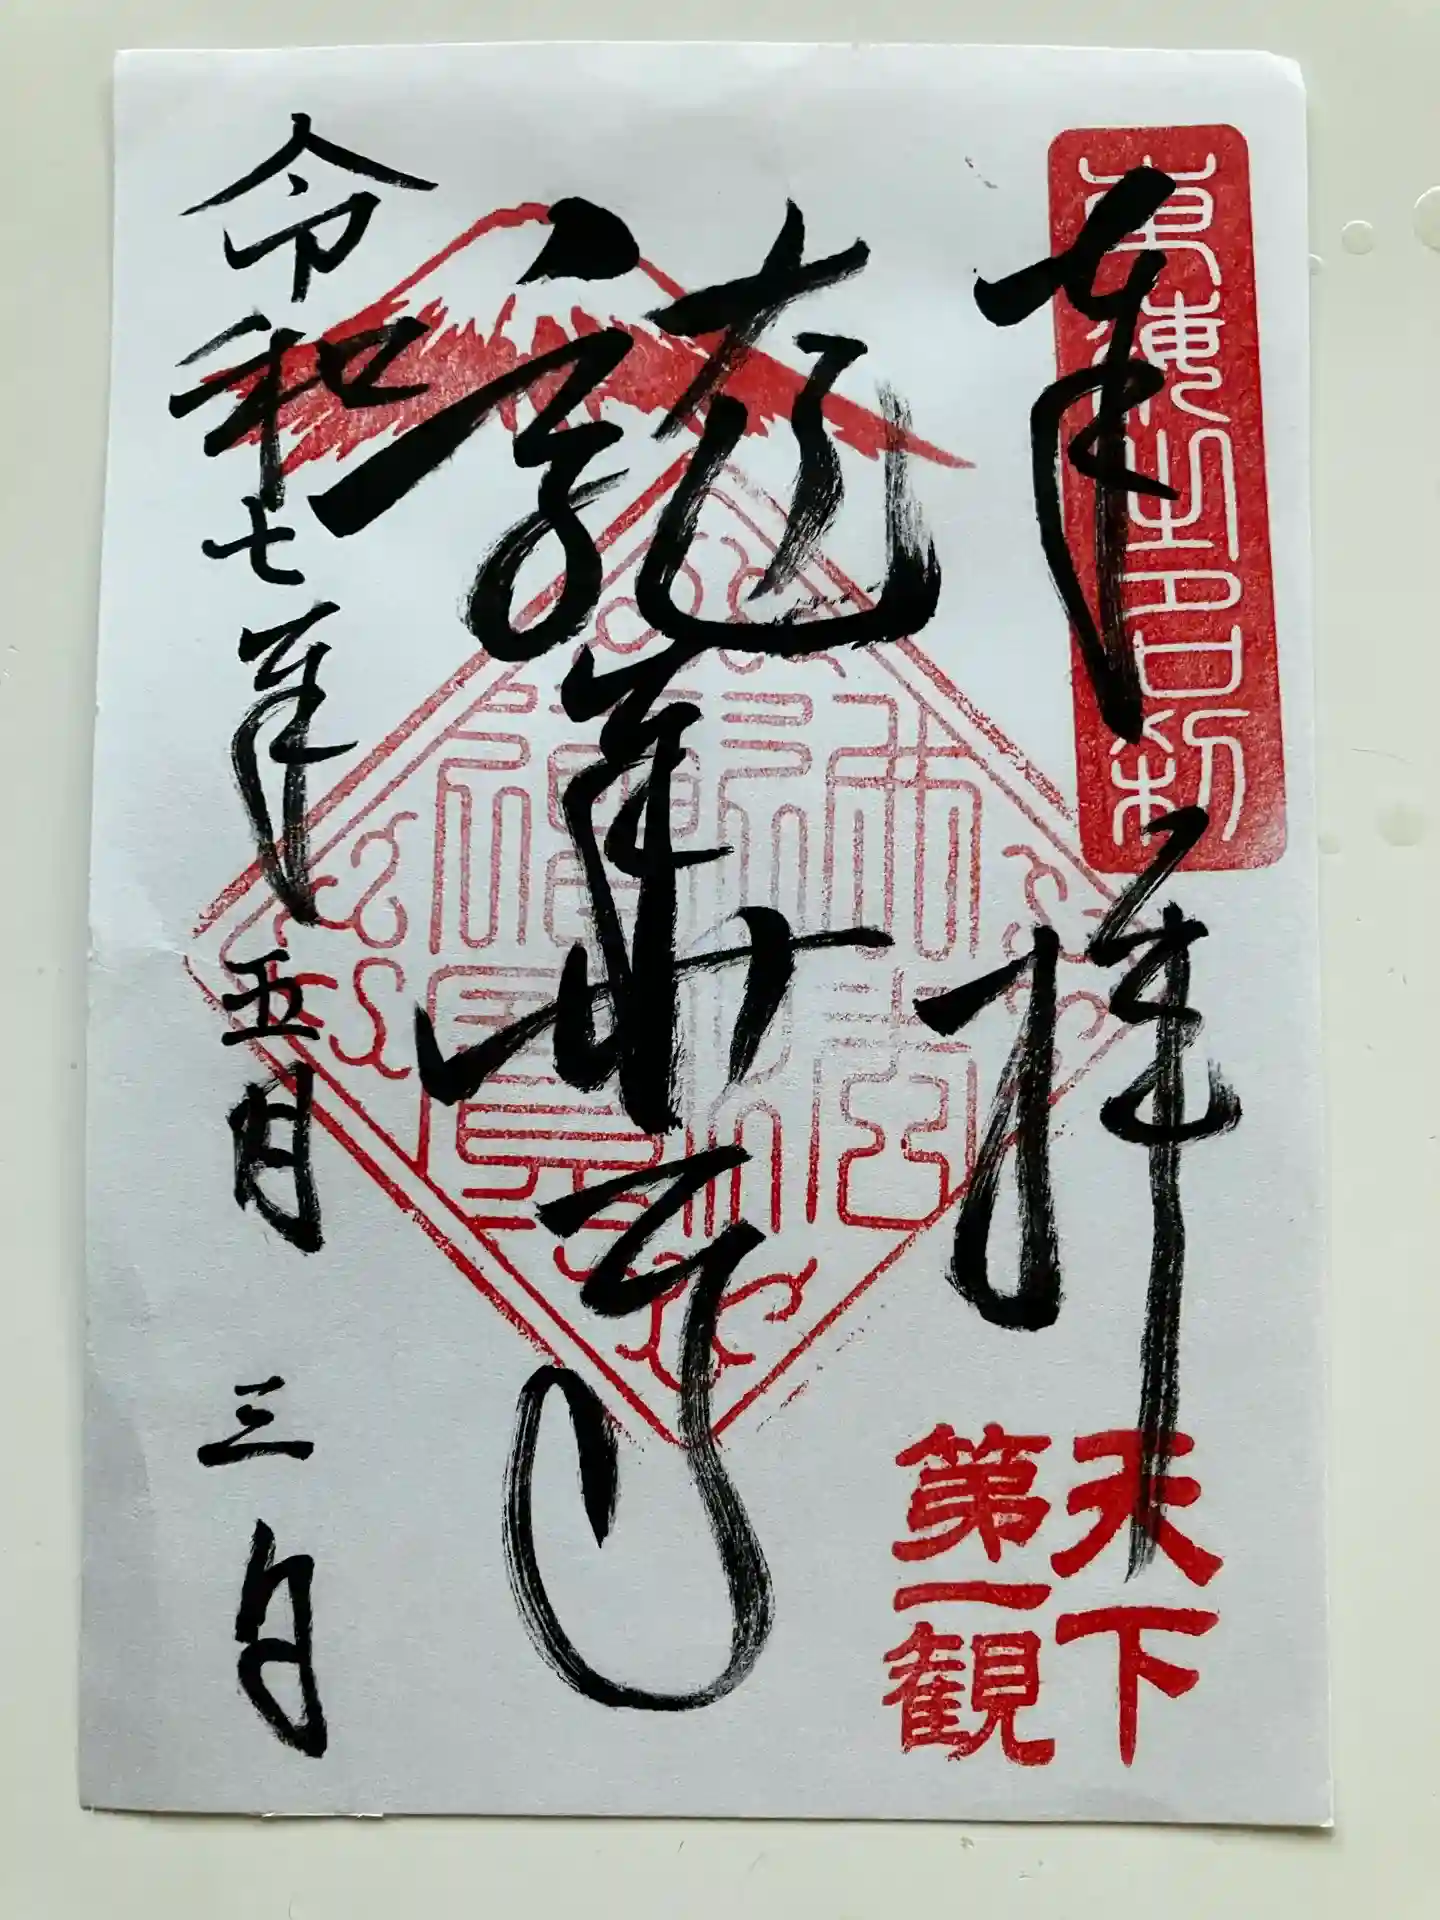 奉拝
東海之名刹
天下
第一観
龍華寺
令和七年五月三日